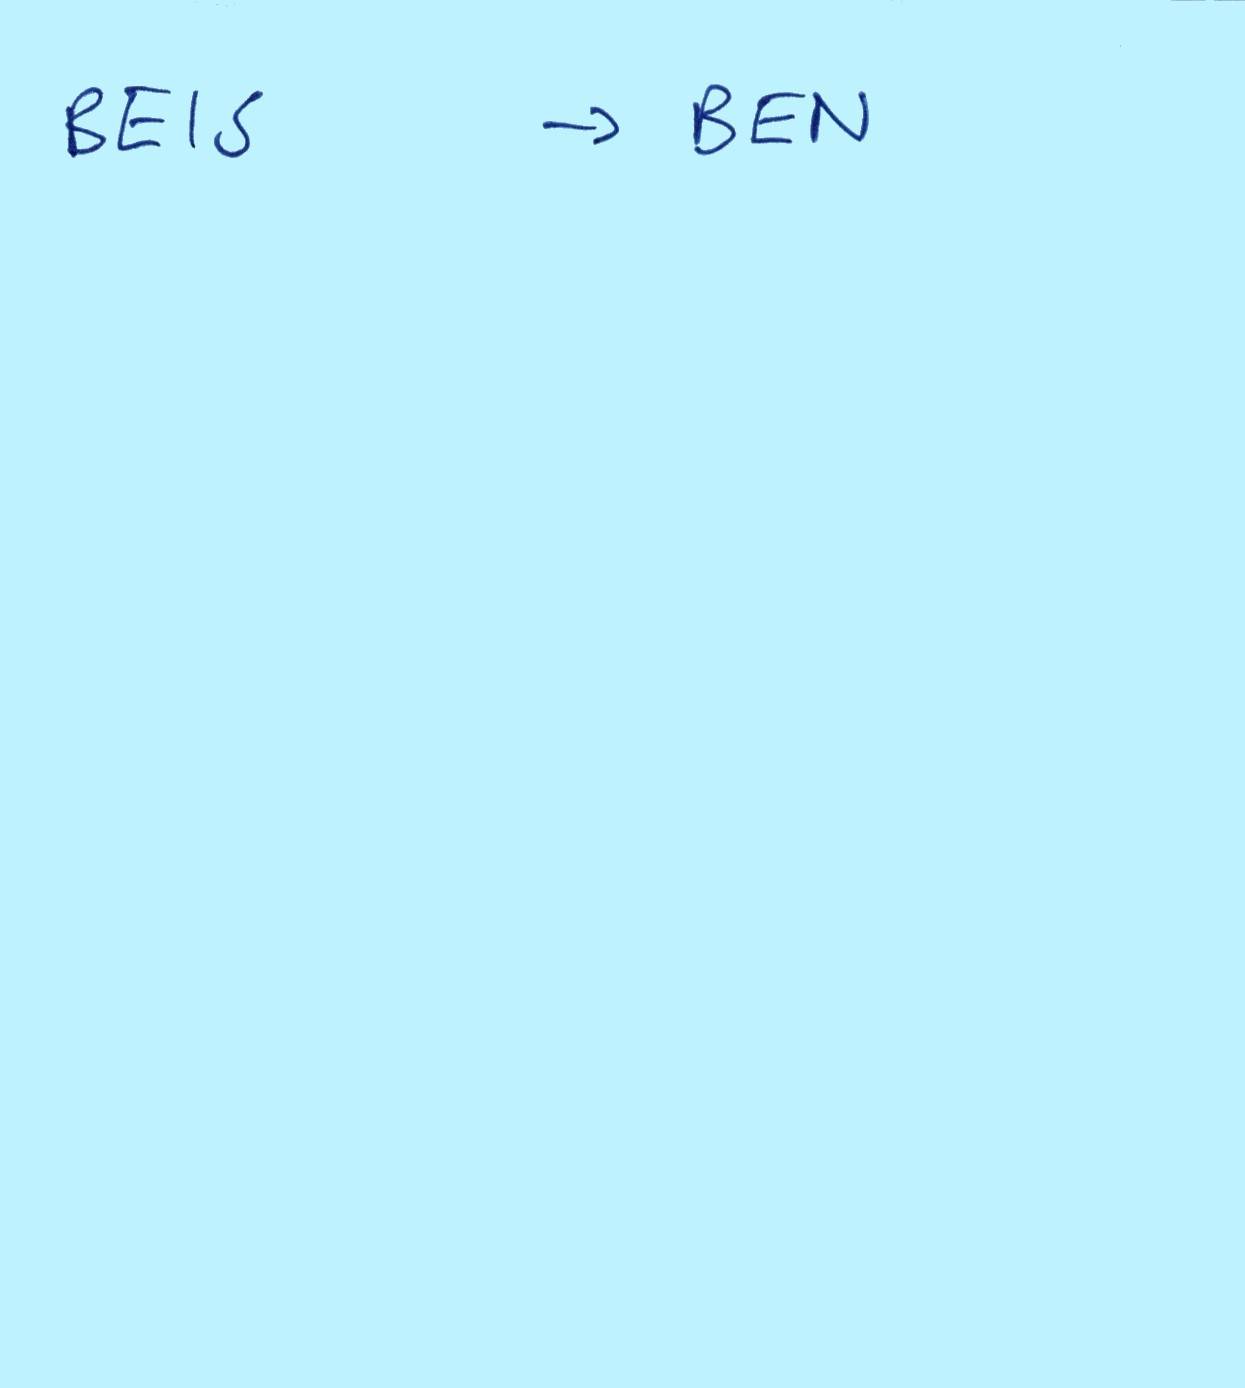 BEIS → BEN